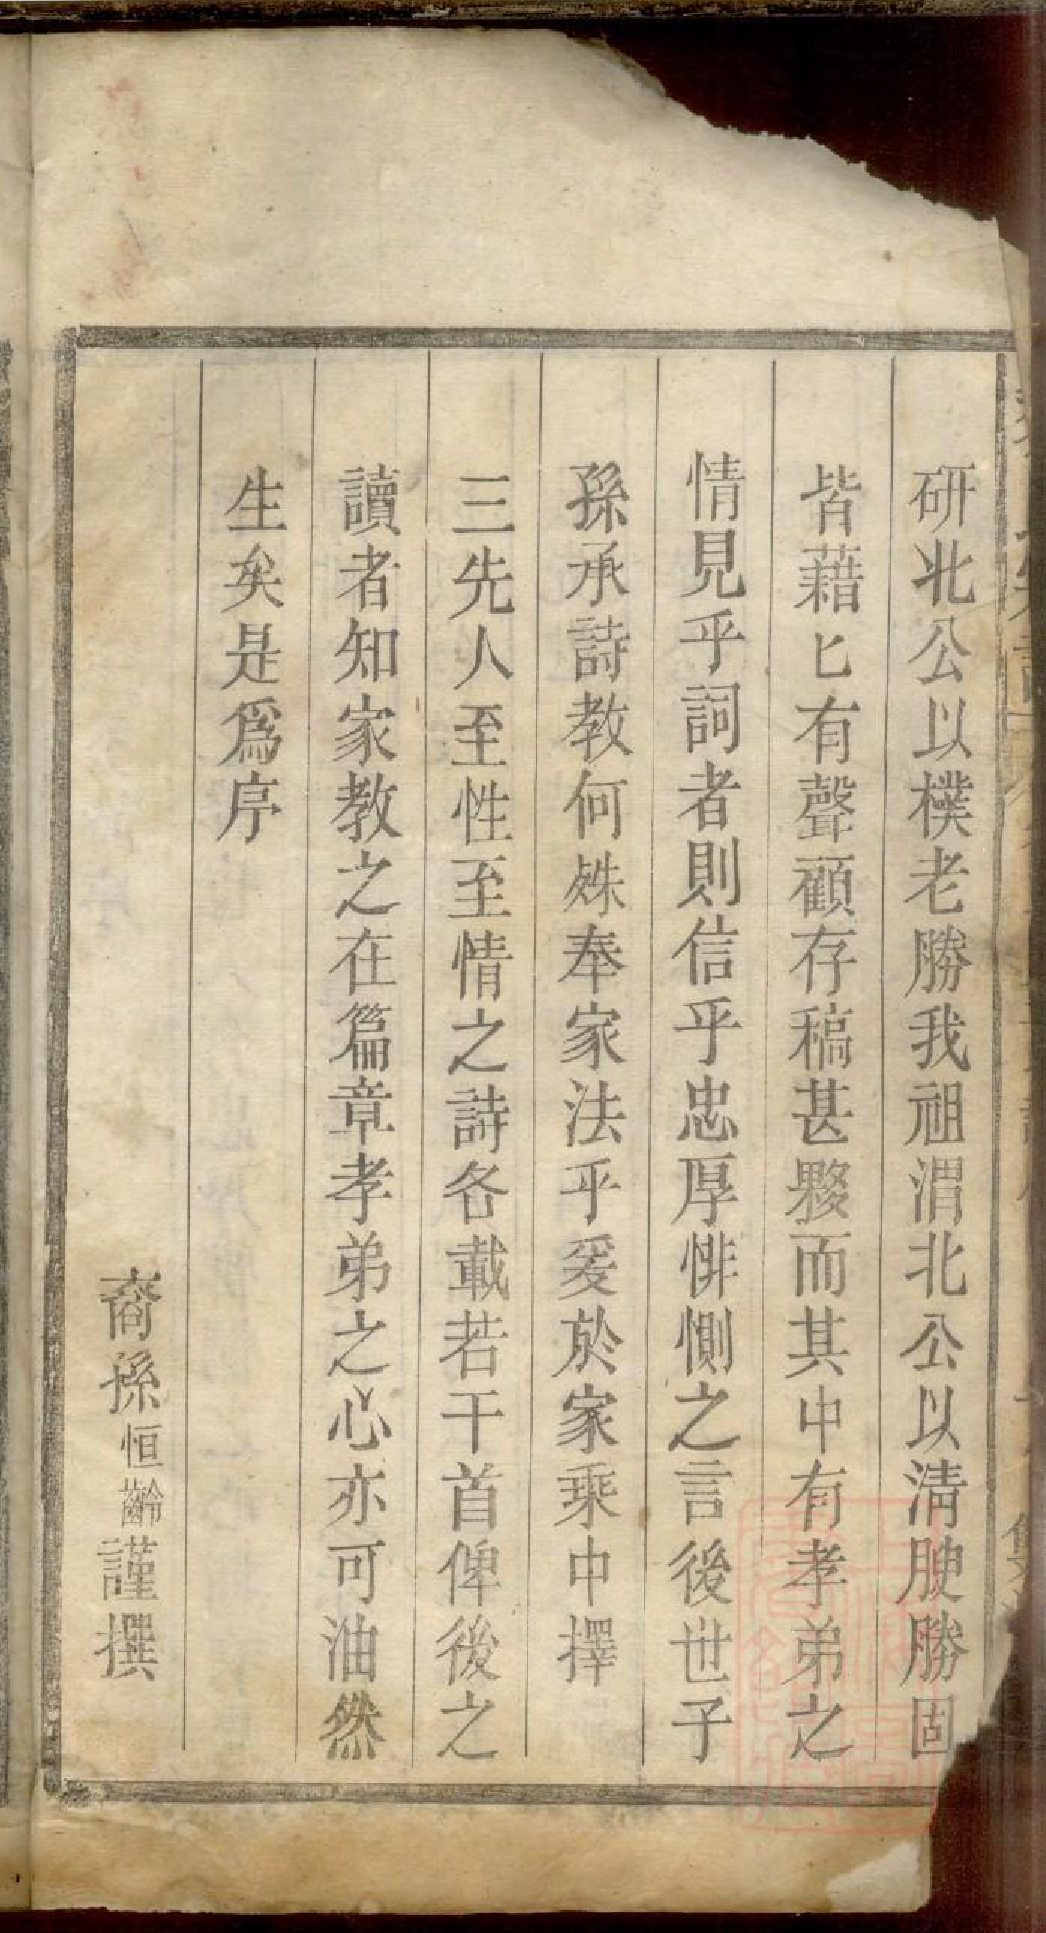 研北公以樸老勝我祖渭北公以清腴勝固
皆藉匕有聲顧存稿甚夥而其中有孝弟之
情見乎詞者則信乎忠厚悱惻之言後世子
孫承詩教何殊奉家法乎爰於家乘中擇
三先人至性至情之詩各載若干首俾後之
讀者知家教之在篇章孝弟之心亦可油然
生矣是爲序
裔孫恒齡謹撰